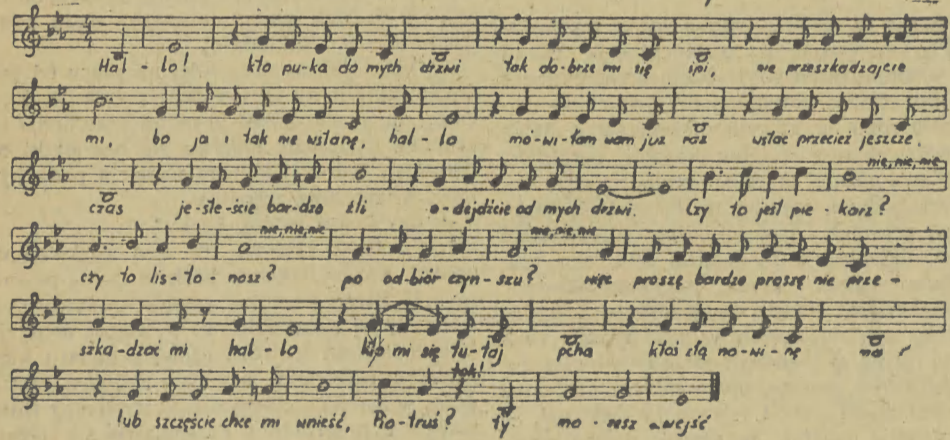 Hal - lo! kto pu-ka do mych drzwi tak do-brze mi się śpi, nie przeszkadzajcie
mi, bo ja i tak nie wstanę, hal - lo mó-wi-łam wam już raz wstać przecież jeszcze
nie, nie, nie
czas je-ste-ście bar-dzo źli o-dejdźcie od mych drzwi. Czy to jest pie - karz?
nie, nie, nie nie, nie, nie
czy to lis-to-nosz? po od-biór czyn-szu? więc proszę bardzo proszę nie prze -
szka-dzać mi hal - lo kto mi się tu-taj pcha ktoś złą no-wi-nę ma
tak!
lub szczęście chce mi wnieść, Pio-truś? ty mo - żesz wejść